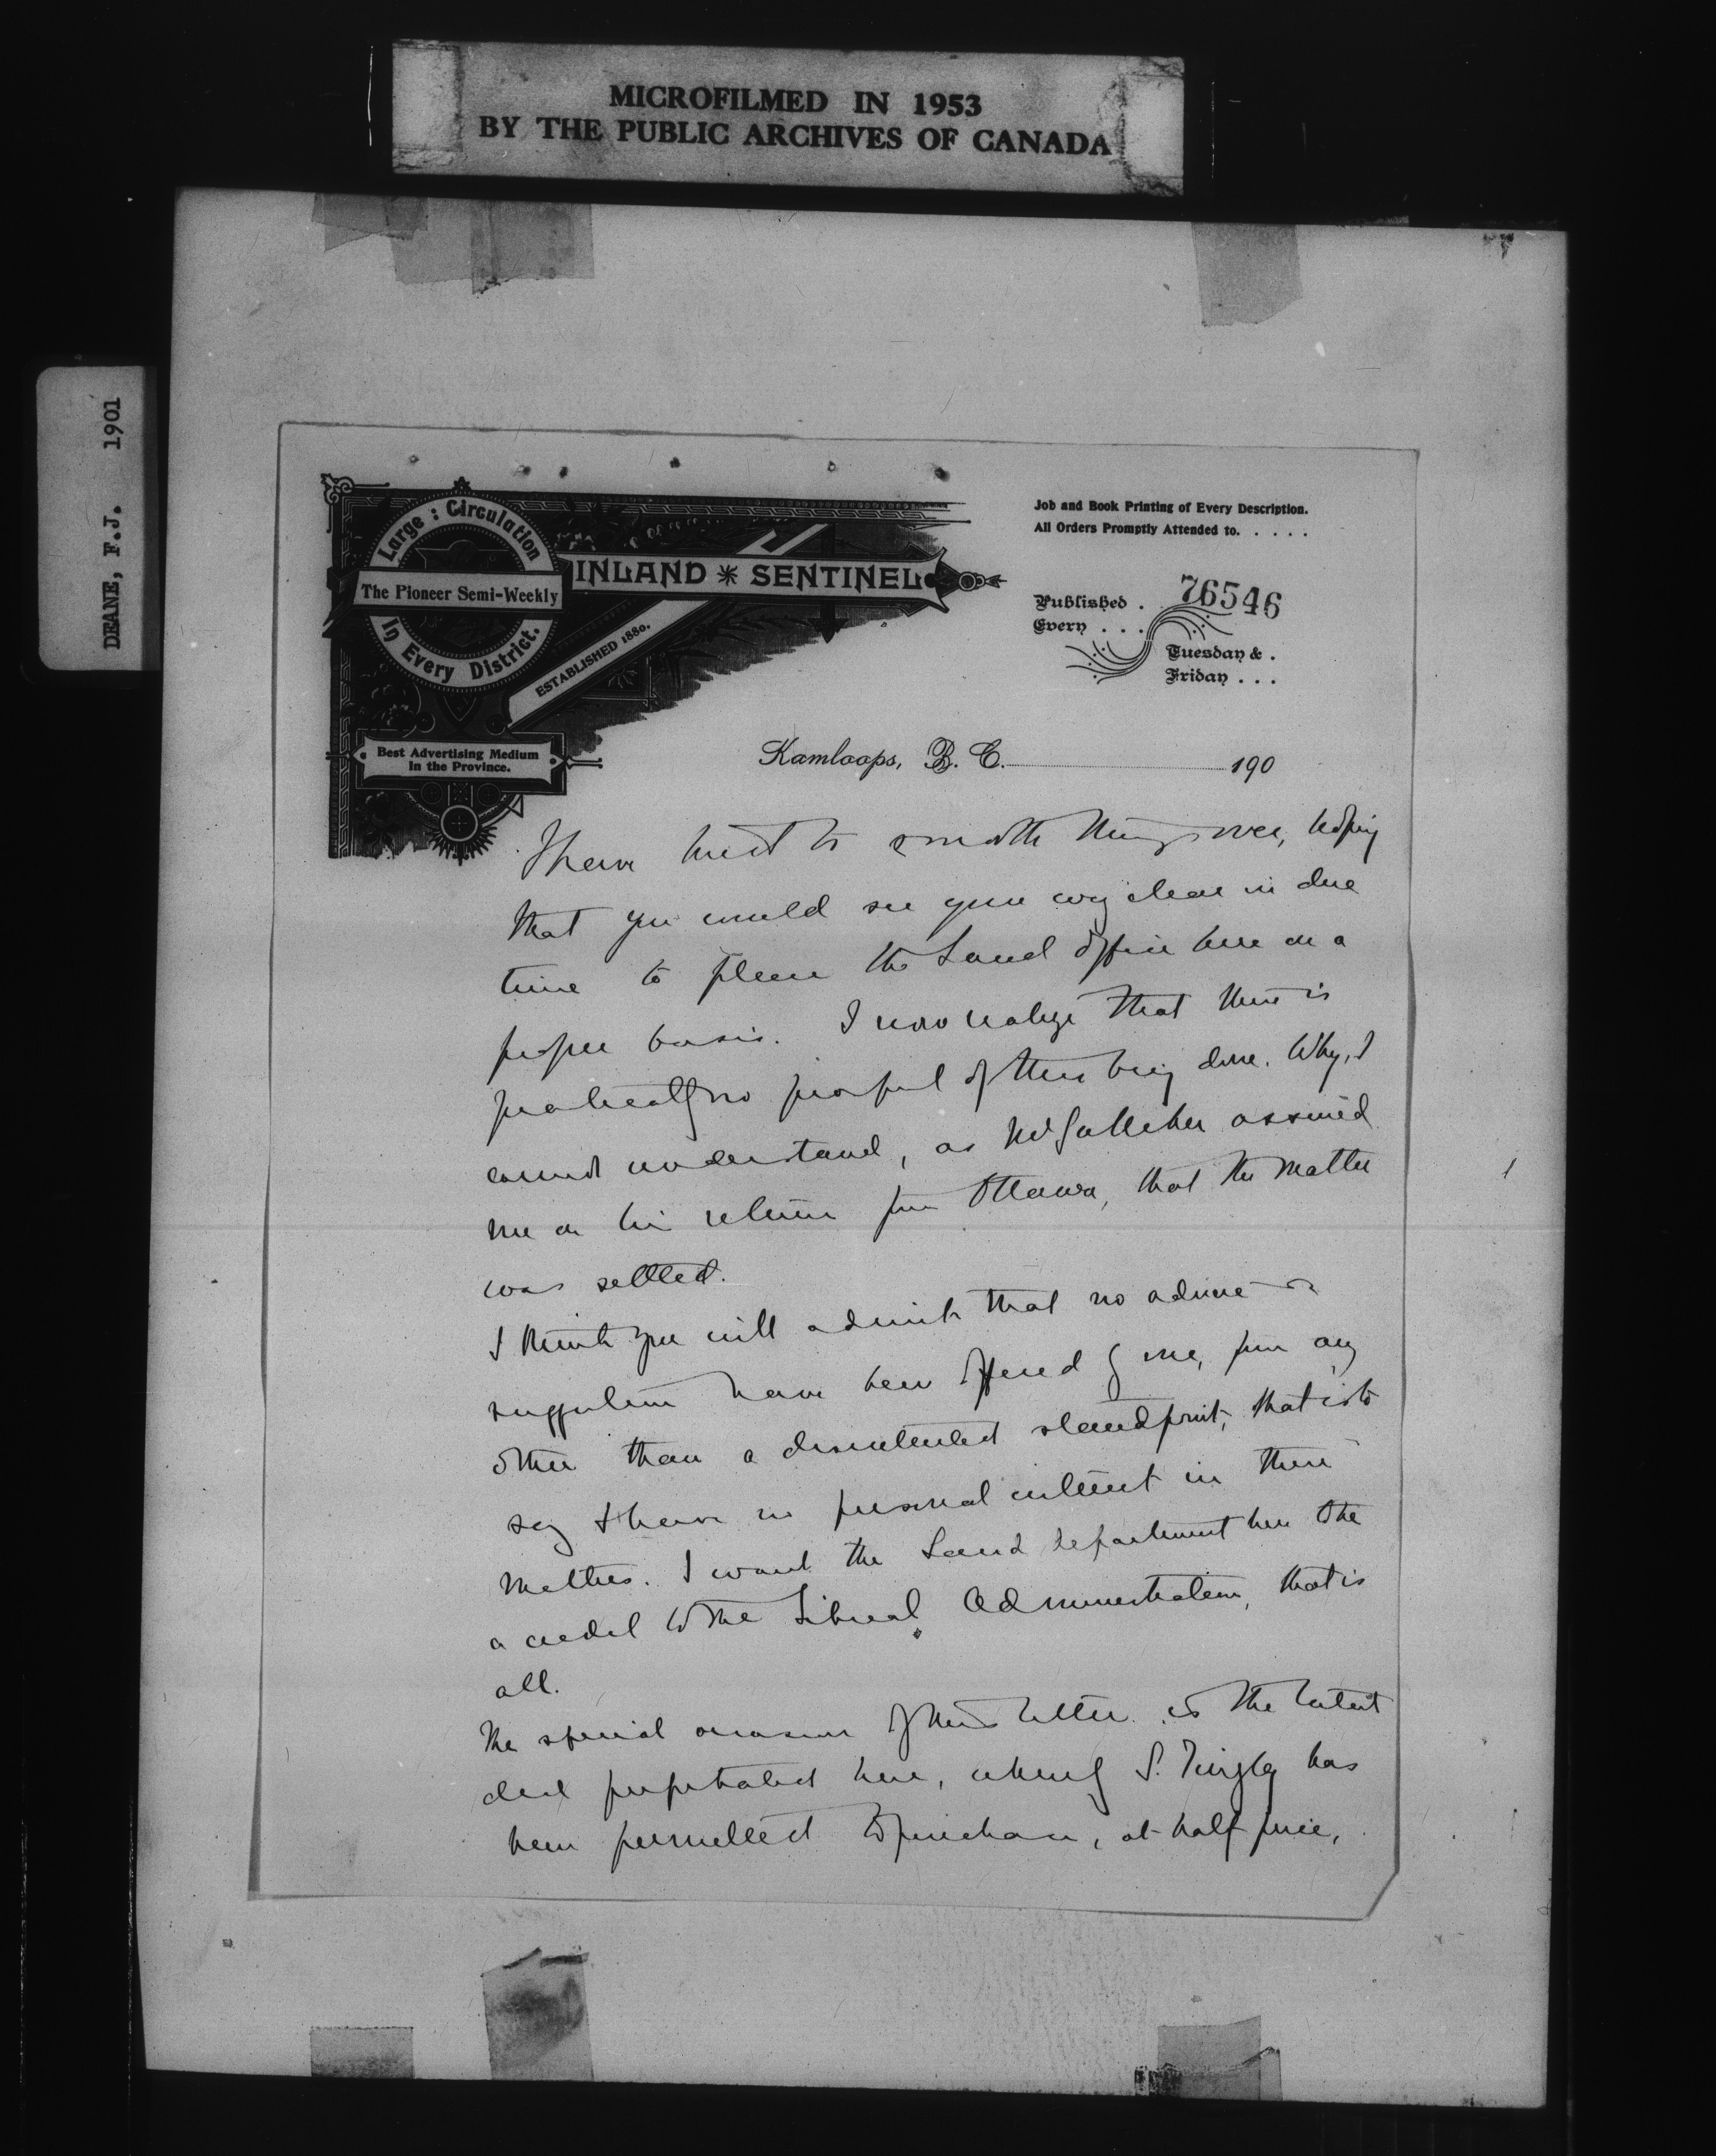 MICROFILMED IN 1953
BY THE PUBLIC ARCHIVES OF CANADA
DEANE, F.J. 1901
Large : Circulation
The Pioneer Semi-Weekly
In Every District.
INLAND SENTINEL
ESTABLISHED 1880.
Best Advertising Medium
in the Province.
Job and Book Printing of Every Description.
All Orders Promptly Attended to. . . . .
76546
Published .
Every . . .
Tuesday & .
Friday . . .
Kamloops, B. C. 190
I have tried to smooth things over, hoping
that you would see your way clear in due
time to place the Land Office here on a
proper basis. I now realize that there is
practically no prospect of this being done. Why, I
cannot understand, as Mr Galliher assured
me on his return from Ottawa, that the matter
was settled.
I think you will admit that no advice or
suggestion have been offered by me, from any
other than a disinterested standpoint, that is to
say I have no personal interest in these
matters. I want the Land Department here to be
a credit to the Liberal Administration, that is
all.
The special occasion of this letter is the latest
deal perpetrated here, whereby S. Tingley has
been permitted to purchase, at half price,